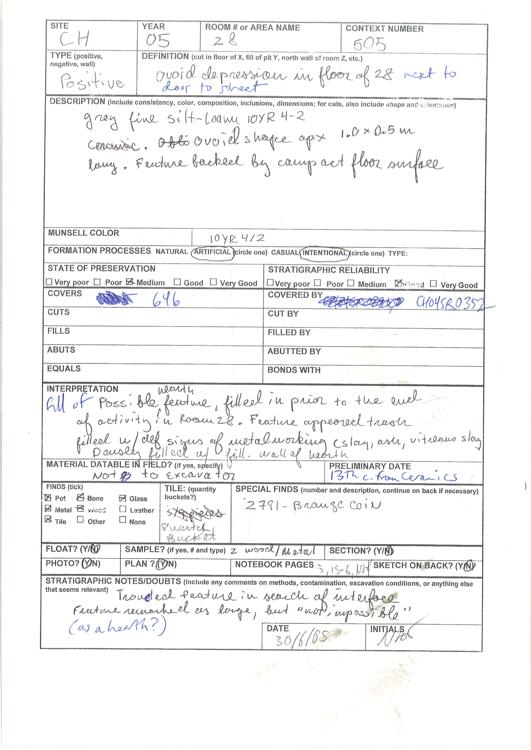 SITE CH YEAR 05 ROOM # or AREA NAME 28 CONTEXT NUMBER 505
TYPE (positive, negative, wall) Positive
DEFINITION (cut in floor of X, fill of pit Y, north wall of room Z, etc.)
Ovoid depression in floor of 28 next to
door to street
DESCRIPTION (include consistency, color, composition, inclusions, dimensions; for cuts, also include shape and orientation)
grey fine silt-loam 10YR 4-2
Ceramic. Ovoid shape apx 1.0 x 0.5 m
long. Feature backed by compact floor surface
MUNSELL COLOR 10YR 4/2
FORMATION PROCESSES NATURAL ARTIFICIAL (circle one) CASUAL INTENTIONAL (circle one) TYPE:
STATE OF PRESERVATION STRATIGRAPHIC RELIABILITY
Very poor Poor Medium Good Very Good Very poor Poor Medium Good Very Good
COVERS 646 COVERED BY CH04SR0352
CUTS CUT BY
FILLS FILLED BY
ABUTS ABUTTED BY
EQUALS BONDS WITH
INTERPRETATION hearth
fill of Possible feature, filled in prior to the end
of activity in Room 28. Feature appeared trash
filled w/ def signs of metalworking (slag, ash, vitreous slag
filled w/ fill. wall of hearth
MATERIAL DATABLE IN FIELD? (if yes, specify)
Not to excavator
PRELIMINARY DATE
13th c. from Ceramics
FINDS (tick)
Pot Bone Glass
Metal Wood Leather
Tile Other None
TILE: (quantity buckets?)
Quarter
Bucket
SPECIAL FINDS (number and description, continue on back if necessary)
2791 - Bronze Coin
FLOAT? (Y/N) SAMPLE? (if yes, # and type) 2 wood/Metal SECTION? (Y/N)
PHOTO? (Y/N) PLAN? (Y/N) NOTEBOOK PAGES 3, 15-6, SKETCH ON BACK? (Y/N)
STRATIGRAPHIC NOTES/DOUBTS (include any comments on methods, contamination, excavation conditions, or anything else
that seems relevant)
Troweled feature in search of interface
Feature remarked as large, but "not impossible"
(as a hearth?)
DATE 30/6/05 INITIALS